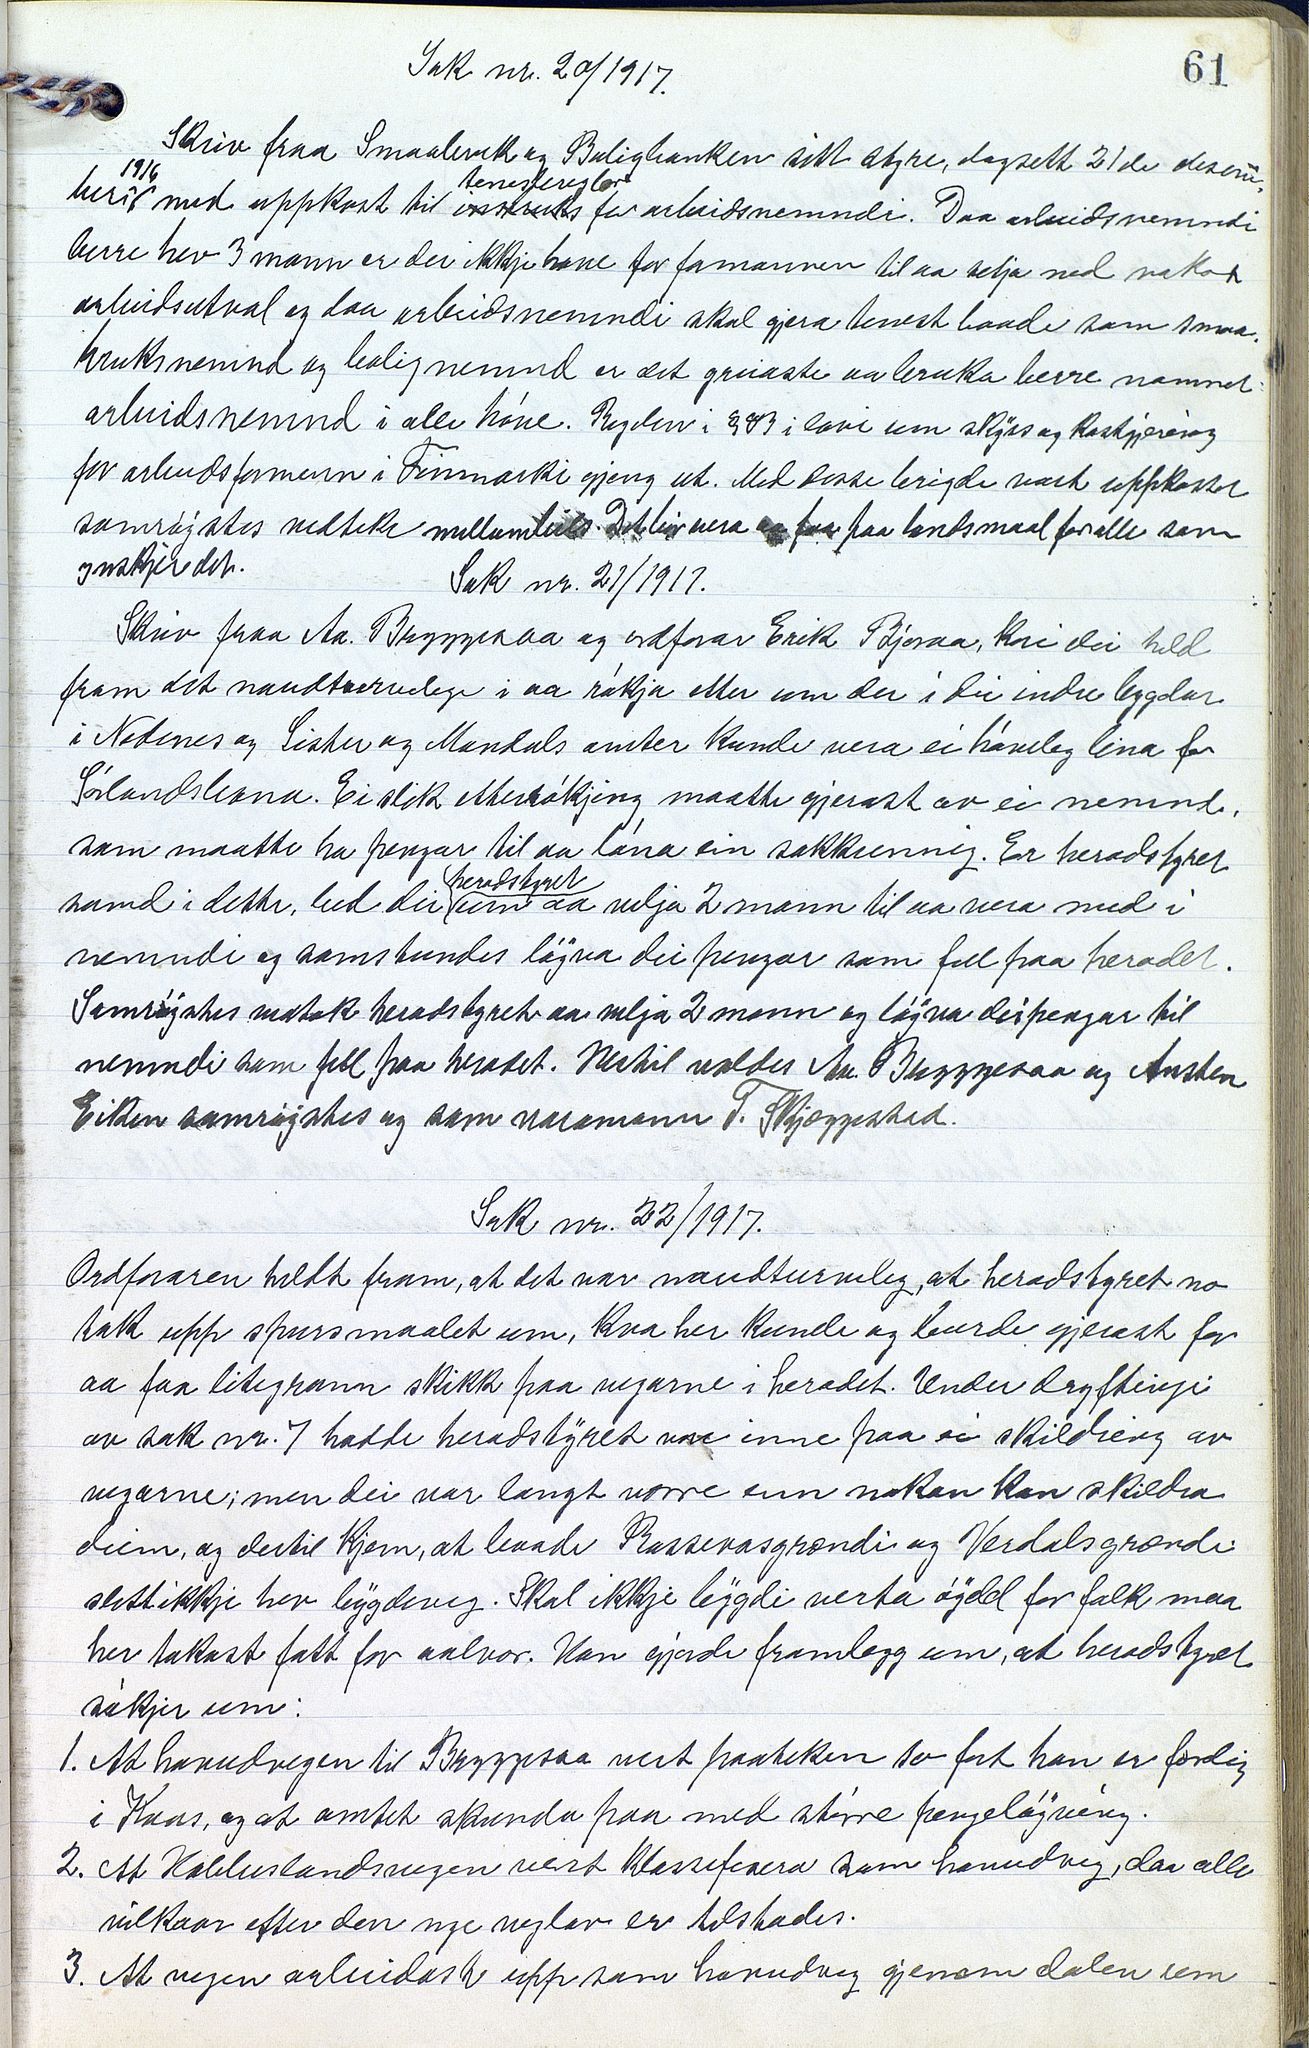 61
Sak nr. 20/1917.
Skriv fraa Smaabruk og Boligbanken sitt styre, dagsett 21de desem-
ber 1916 med uppkast til instruks tenestereglar for arbeidsnemndi. Daa arbeidsnemndi
berre hev 3 mann er dei ikkje høve for formannen til aa velja ned nokot
arbeidsutval og daa arbeidsnemndi skal gjera tenest baade som smaa-
bruksnemnd og bolignemnd er det greiaste aa bruka berre namnet:
arbeidsnemnd i alle høve. Reglen i § 83 i lovi um skyss og kostgjering
for arbeidsformenn i Finmarki gjeng ut. Med desse brigde vart uppkastet
samrøystes vedteke mellombils. Det bør vera aa faa paa landsmaal for alle som
ynskjer det.
Sak nr. 21/1917.
Skriv fraa Aa. Byggesaa og ordførar Erik Bjoraa, kor dei held
fram det naudturvelege i aa røkja etter um der i dei indre bygdar
i Nedenes og Lister og Mandals amter kunde vera ei høveleg lina for
Sørlandsbana. Ei slik etterrøkjing maatte gjerast av ei nemnd,
som maatte ha pengar til aa løna ein sakkunnig. Er heradstyret
samd i dette, bed dei heradstyret um aa velja 2 mann til aa vera med i
nemndi og samstundes løyva dei pengar som fell paa heradet.
Samrøystes vedtok heradstyret aa velja 2 mann og løyva dei pengar til
nemndi som fell paa heradet. Hertil valdes Aa. Byggesaa og Austen
Eiken samrøystes og som varamann T. Skjeggestad.
Sak nr. 22/1917.
Ordføraren heldt fram, at det var naudturveleg, at heradstyret no
tok upp spursmaalet um, kva her kunde og burde gjerast for
aa faa litegrann skikk paa vegarne i heradet. Under dryftingi
av sak nr. 7 hadde heradstyret vore inne paa ei skildring av
vegarne; men dei var langt verre enn nokon kan skildra
deim, og dertil kjem, at baade Rossevasgrændi og Verdalsgrændi
slett ikkje hev bygdeveg. Skal ikkje bygdi verta øydd for folk maa
her takast fatt for aalvor. Han gjorde framlegg um, at heradstyret
søkjer um:
1. At hovudvegen til Byggesaa vert paateken so fort han er ferdig
i Kaas, og at amtet skunda paa med større pengeløyving.
2. At Hobbeslandsvegen vert klassefisera som hovudveg, daa alle
vilkaar efter den nye veglov er tilstades.
3. At vegen arbeidast upp som hovudveg gjenom dalen som